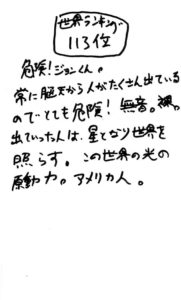 世界ランキング
113位
危険!ジョンくん。
常に脳天から人がたくさん出ている
のでとても危険!無音。裸。
出ていった人は、星となり世界を
照らす。この世界の光の
原動力。アメリカ人。